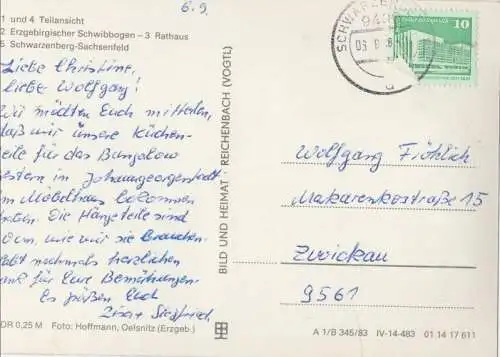 6.9.
1 und 4 Teilansicht
2 Erzgebirgischer Schwibbogen – 3 Rathaus
5 Schwarzenberg-Sachsenfeld
Liebe Christine,
liebe Wolfgang!
Wir möchten Euch mitteilen,
daß wir unsere Küchen-
eile für das Bungalow
estern in Johanngeorgenstadt
im Möbelhaus bekommen
Die Hängeteile sind
wie wir sie brauchen.
abt nochmals herzlichen
ank für Eure Bemühungen.
Es grüßen Euch
Siegfried
DR 0,25 M Foto: Hoffmann, Oelsnitz (Erzgeb.)
BILD UND HEIMAT · REICHENBACH (VOGTL)
SCHWARZENB
10
Wolfgang Fröhlich
Makarenkostraße 15
Zwickau
9561
A 1/B 345/83 IV-14-483 01 14 17 611